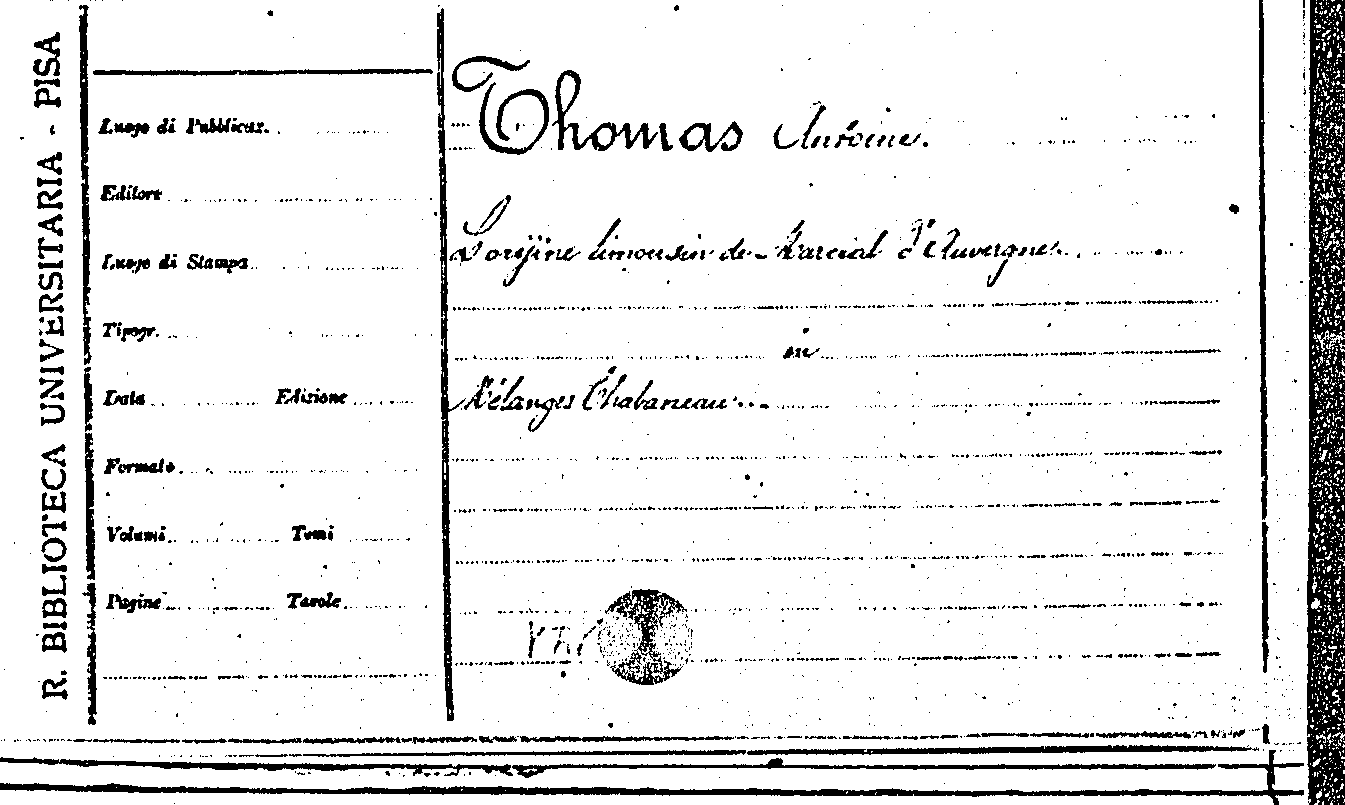 R. BIBLIOTECA UNIVERSITARIA - PISA
Luogo di Pubblicaz.
Editore
Luogo di Stampa
Tipogr.
Data Edizione
Formato
Volumi Tomi
Pagine Tavole
Thomas Antoine.
L'orijine limousin de Marcial d'Auvergne
in
Mélanges Chabaneau